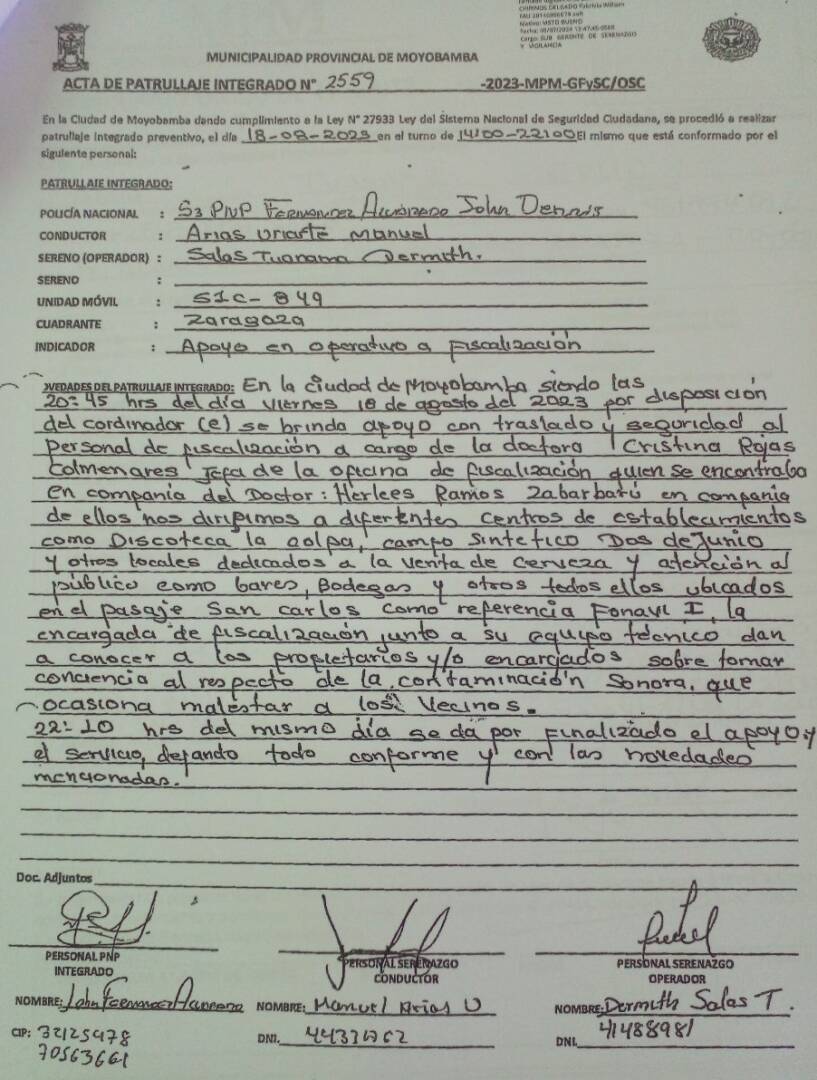 CHIRINOS DELGADO Fabricio William
Motivo: VISTO BUENO
Cargo: SUB GERENTE DE SERENAZGO
Y VIGILANCIA
MUNICIPALIDAD PROVINCIAL DE MOYOBAMBA
ACTA DE PATRULLAJE INTEGRADO N° 2559 -2023-MPM-GFySC/OSC
En la Ciudad de Moyobamba dando cumplimiento a la Ley N° 27933 Ley del Sistema Nacional de Seguridad Ciudadana, se procedió a realizar
patrullaje integrado preventivo, el día 18-08-2023 en el turno de 14:00-22:00 El mismo que está conformado por el
siguiente personal:
PATRULLAJE INTEGRADO:
POLICÍA NACIONAL : S3 PNP Fernandez Alvarado John Dennis
CONDUCTOR : Arias Uriarte Manuel
SERENO (OPERADOR) : Salas Tuanama Dermith.
SERENO :
UNIDAD MÓVIL : S1C-849
CUADRANTE : Zaragoza
INDICADOR : Apoyo en operativo a fiscalización
VEDADES DEL PATRULLAJE INTEGRADO: En la ciudad de Moyobamba siendo las
20:45 hrs del día viernes 18 de agosto del 2023 por disposición
del cordinador (e) se brinda apoyo con traslado y seguridad al
personal de fiscalización a cargo de la doctora Cristina Rojas
Colmenares Jefa de la oficina de fiscalización quien se encontraba
en compañia del Doctor: Herlees Ramos Zabarbarú en compañia
de ellos nos dirigimos a diferentes centros de establecimientos
como Discoteca la colpa, campo sintetico Dos de Junio
y otros locales dedicados a la venta de cerveza y atención al
público como bares, Bodegas y otros todos ellos ubicados
en el pasaje San carlos como referencia Fonavi I, la
encargada de fiscalización junto a su equipo técnico dan
a conocer a los propietarios y/o encargados sobre tomar
conciencia al respecto de la contaminación Sonora, que
ocasiona malestar a los vecinos.
22:10 hrs del mismo día se da por finalizado el apoyo y
el servicio, dejando todo conforme y con las novedades
mencionadas.
Doc. Adjuntos
PERSONAL PNP
INTEGRADO
PERSONAL SERENAZGO
CONDUCTOR
PERSONAL SERENAZGO
OPERADOR
NOMBRE: John Fernandez Alvarado
NOMBRE: Manuel Arias U
NOMBRE: Dermith Salas T.
CIP: 32125978
70563661
DNI.
DNI. 41488981